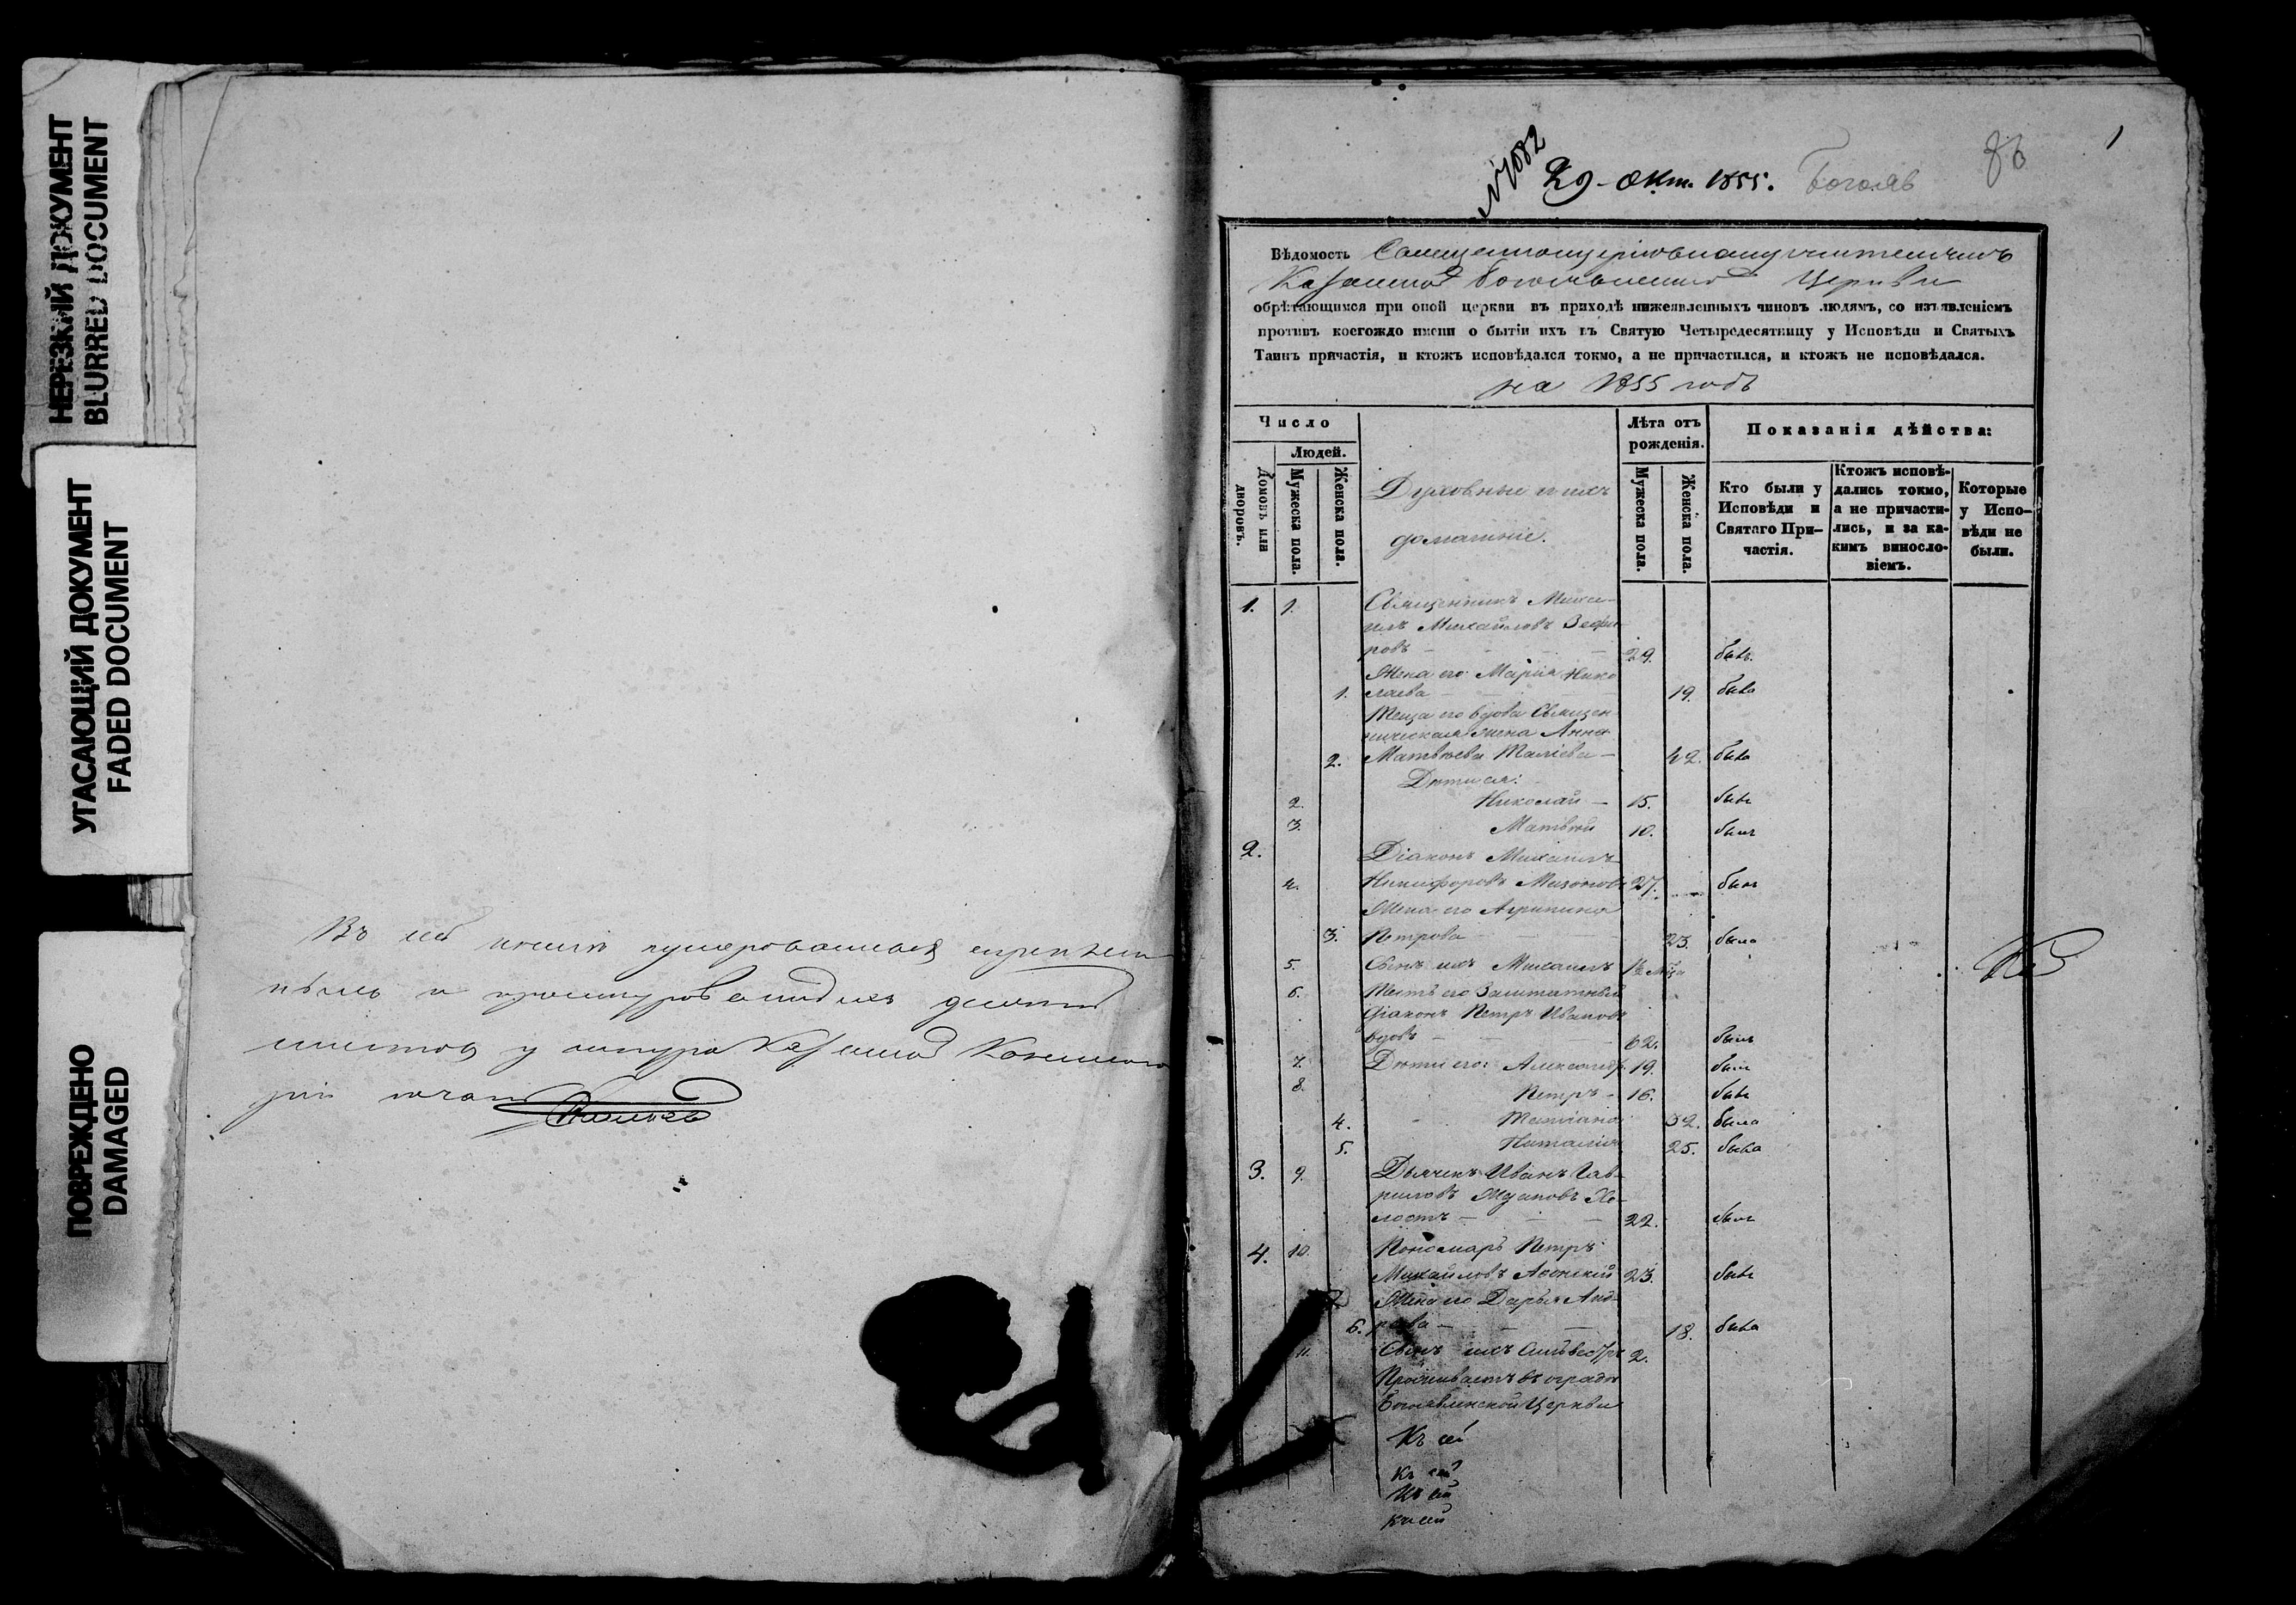 НЕРЕЗКИЙ ДОКУМЕНТ
BLURRED DOCUMENT
УГАСАЮЩИЙ ДОКУМЕНТ
FADED DOCUMENT
ПОВРЕЖДЕНО
DAMAGED
Въ сей
и
листовъ у
№ 1082
29 - Окт. 1855. Богояв
86
1
Вѣдомость
Казанской Богоявленской Церкви
обрѣтающимся при оной церкви въ приходѣ нижеявленныхъ чиновъ людямъ, со изъявленіемъ
противъ коегождо имени о бытіи ихъ въ Святую Четыредесятницу у Исповѣди и Святыхъ
Таинъ причастія, и ктожъ исповѣдался токмо, а не причастился, и ктожъ не исповѣдался.
на 1855 годъ
Число
Людей.
Домовъ или дворовъ.
Мужеска пола.
Женска пола.
Духовные и ихъ
домашніе.
Лѣта отъ рожденія.
Мужеска пола.
Женска пола.
Показанія дѣйства:
Кто были у Исповѣди и Святаго При-
частія.
Ктожъ исповѣ-
дались токмо, а не причасти-
лись, и за ка-
кимъ винословіемъ.
Которые у Испо-
вѣди не были.
1. 1. Священникъ Миха-
илъ Михайловъ Зефи
ровъ — 29. былъ.
Жена его Марія Нико
1. лаева — 19. была
Теща его вдова Священ
ническая жена Анна
2. Матвѣева — 42. была
Дѣти ея:
2. Николай — 15. былъ
3. Матвѣй 10. былъ
2. Діаконъ Михаилъ
4. Никифоровъ 27. былъ
Жена его Агрипина
3. Петрова — 23. была
5. Сынъ ихъ Михаилъ
6. Тесть его Заштатный
діаконъ Петръ Ивановъ
вдовъ — 62. былъ
7. Дѣти его: Александръ 19. былъ
8. Петръ — 16. былъ
4. Татіана 32. была
5. Наталія 25. была
3. 9. Дьячекъ Иванъ Гав-
риловъ Ждановъ Хо-
лостъ — 22. былъ
4. 10. Пономарь Петръ
Михайловъ Аѳонскій 23. былъ
Жена его Дарья Анд-
6. реева — 18. была
11. Сынъ ихъ Сильвестръ 2.
Проживаетъ въ оградѣ
Богоявленской Церкви
Къ сей
Къ сей
Къ сей
Къ сей